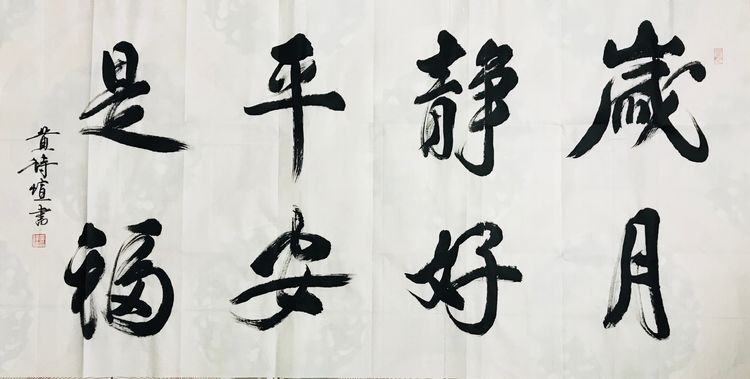 歲月
靜好
平安
是福
黄詩愃書